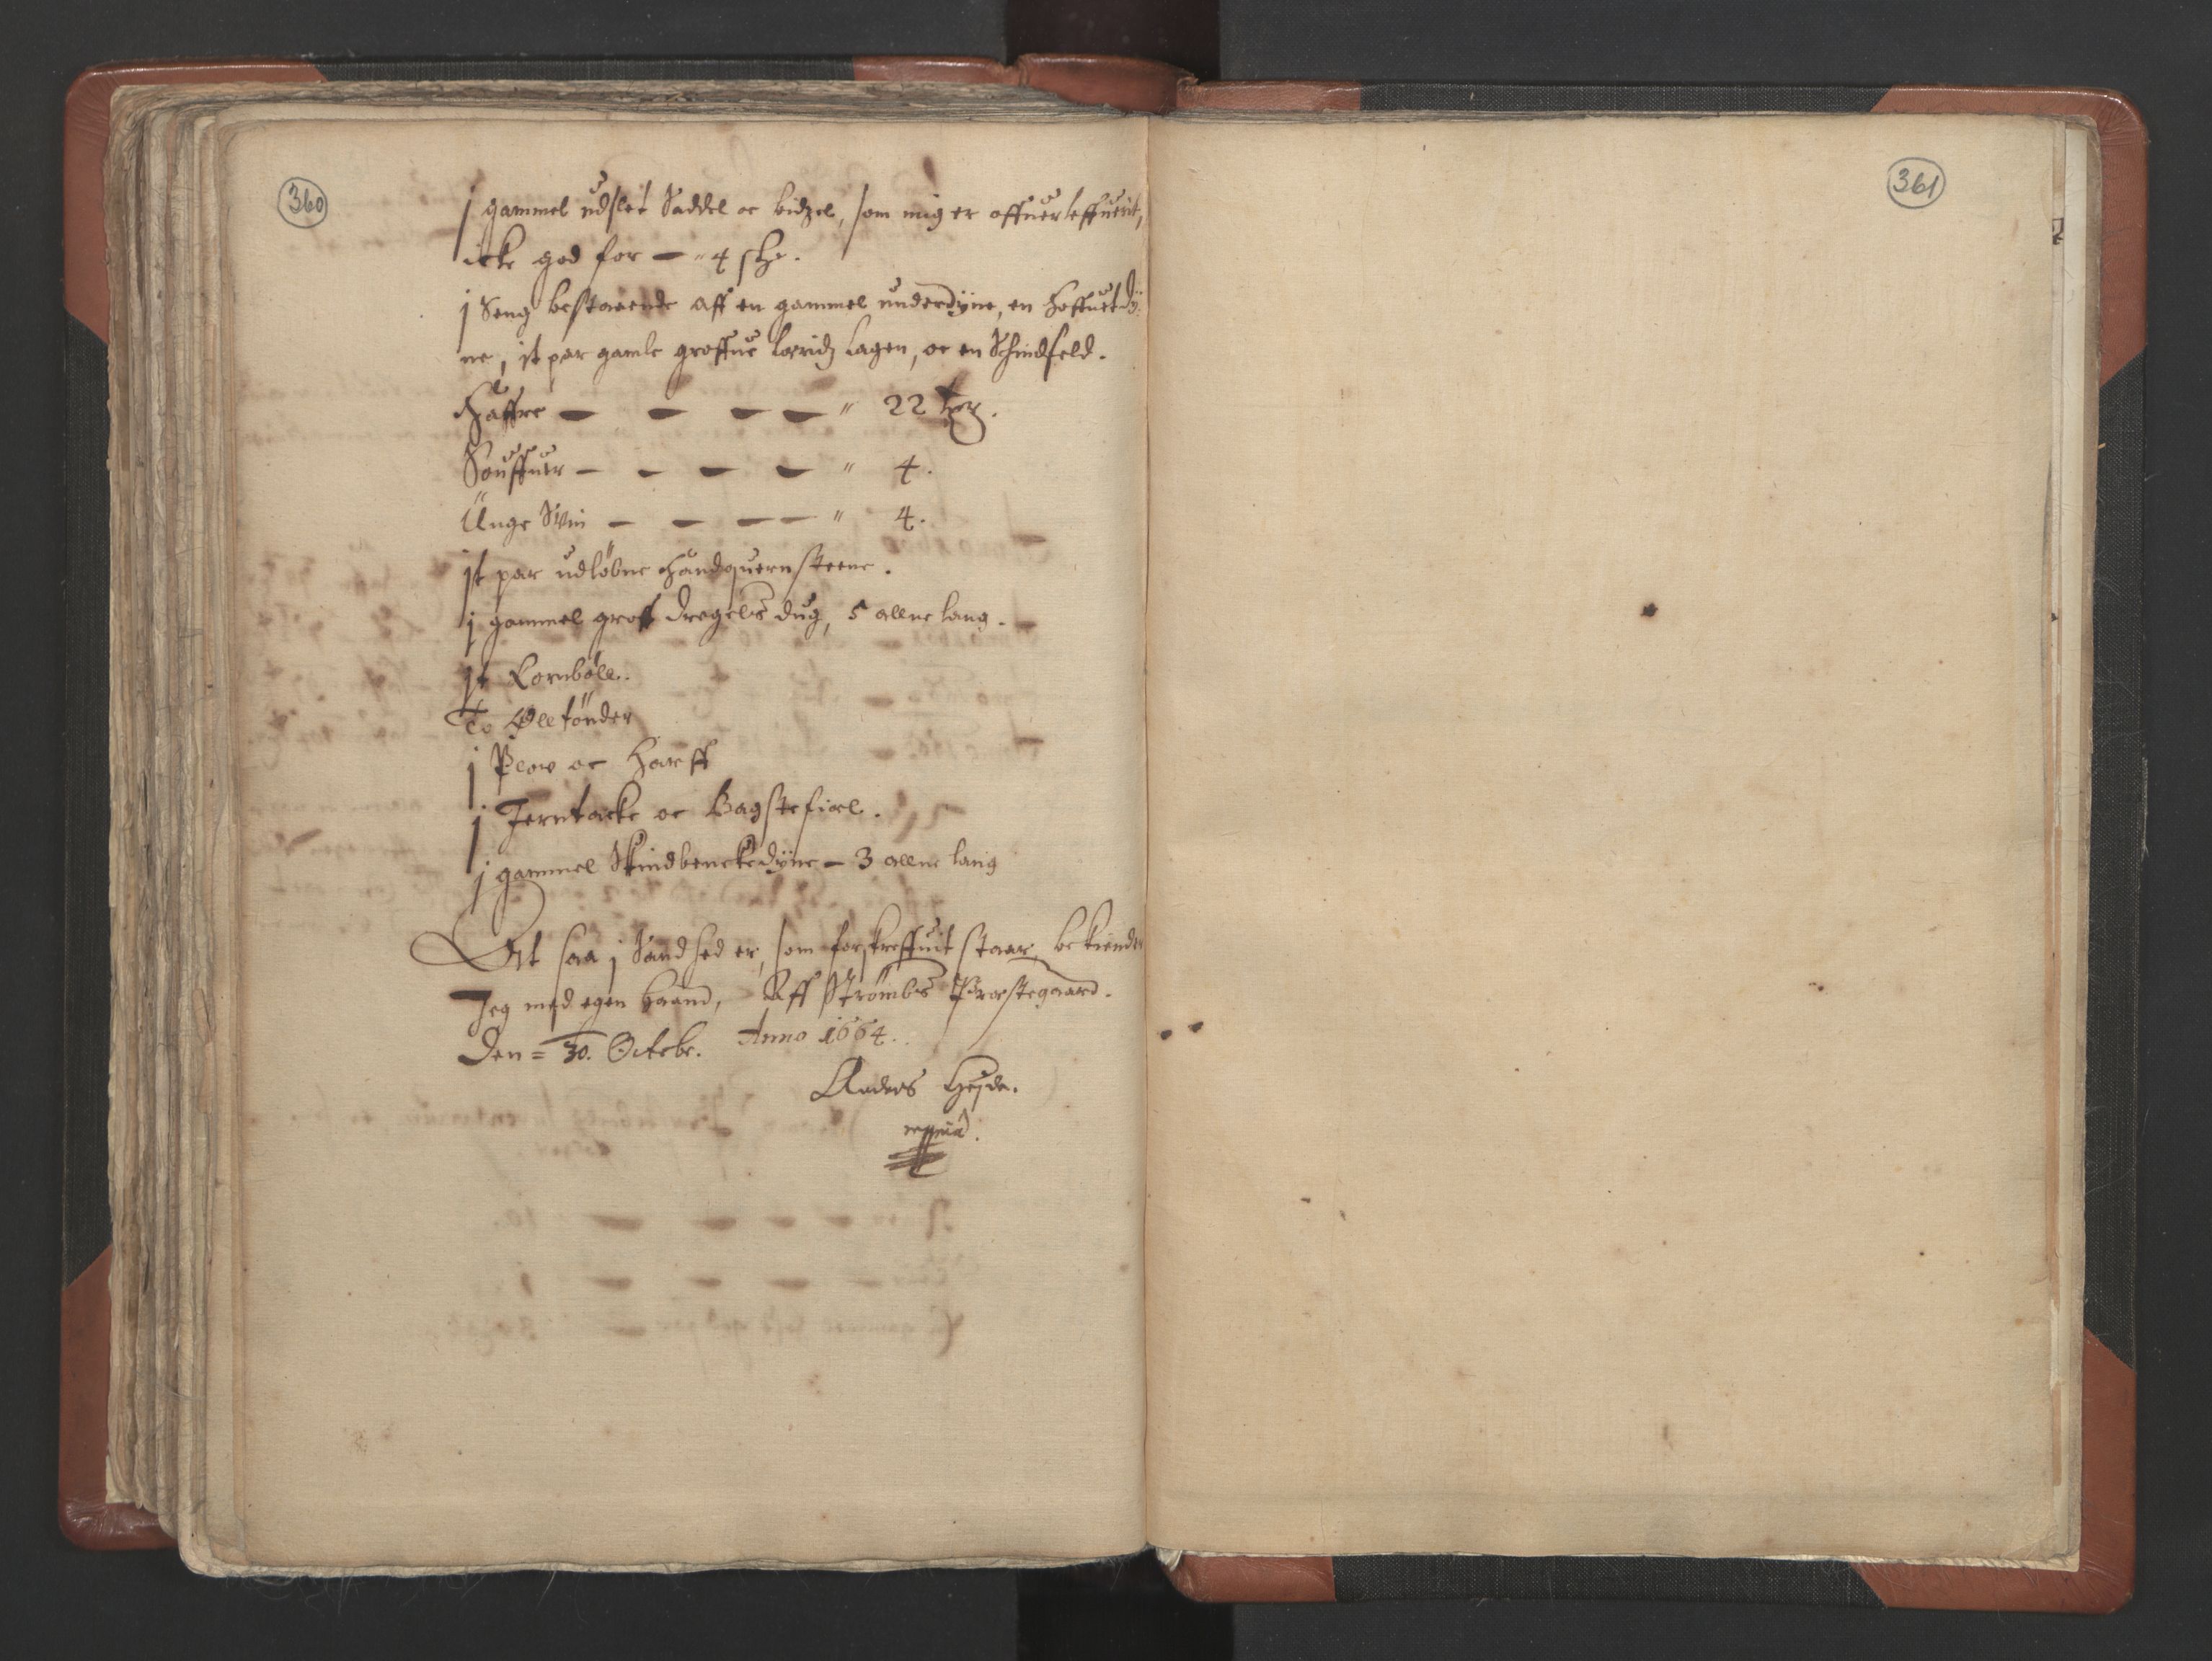 360
361
j gammel udslet Saddel oc bidzel, som mig er offuerleffuerit,
icke god for — " 4 ſkr.
j Seng bestaaende aff en gammel underdÿne, en hoffuetdÿ:
ne, it par gamle groffue lerridz lagen, oc en Schindfeld.
Haffre — — — — " 22 tdr.
Souffuer — — — — " 4.
Unge Svin — — — — " 4.
jt par udløbne Handquernsteene.
j gammel groff Dregels dug, 5 allne lang.
jt Kornbøll.
To Øll tønder
j Plow oc Harff
j Jerntacke oc Bagstefiæl.
j gammel Skindbenckedÿne — 3 allne lang
At saa j Sandhed er, som forskreffuit staar, bekiender
Jeg med egen haand, Aff Strømbs Præstegaard.
Den = 30. Octobr. Anno 1664.
Anders Hejde.
mppriá.